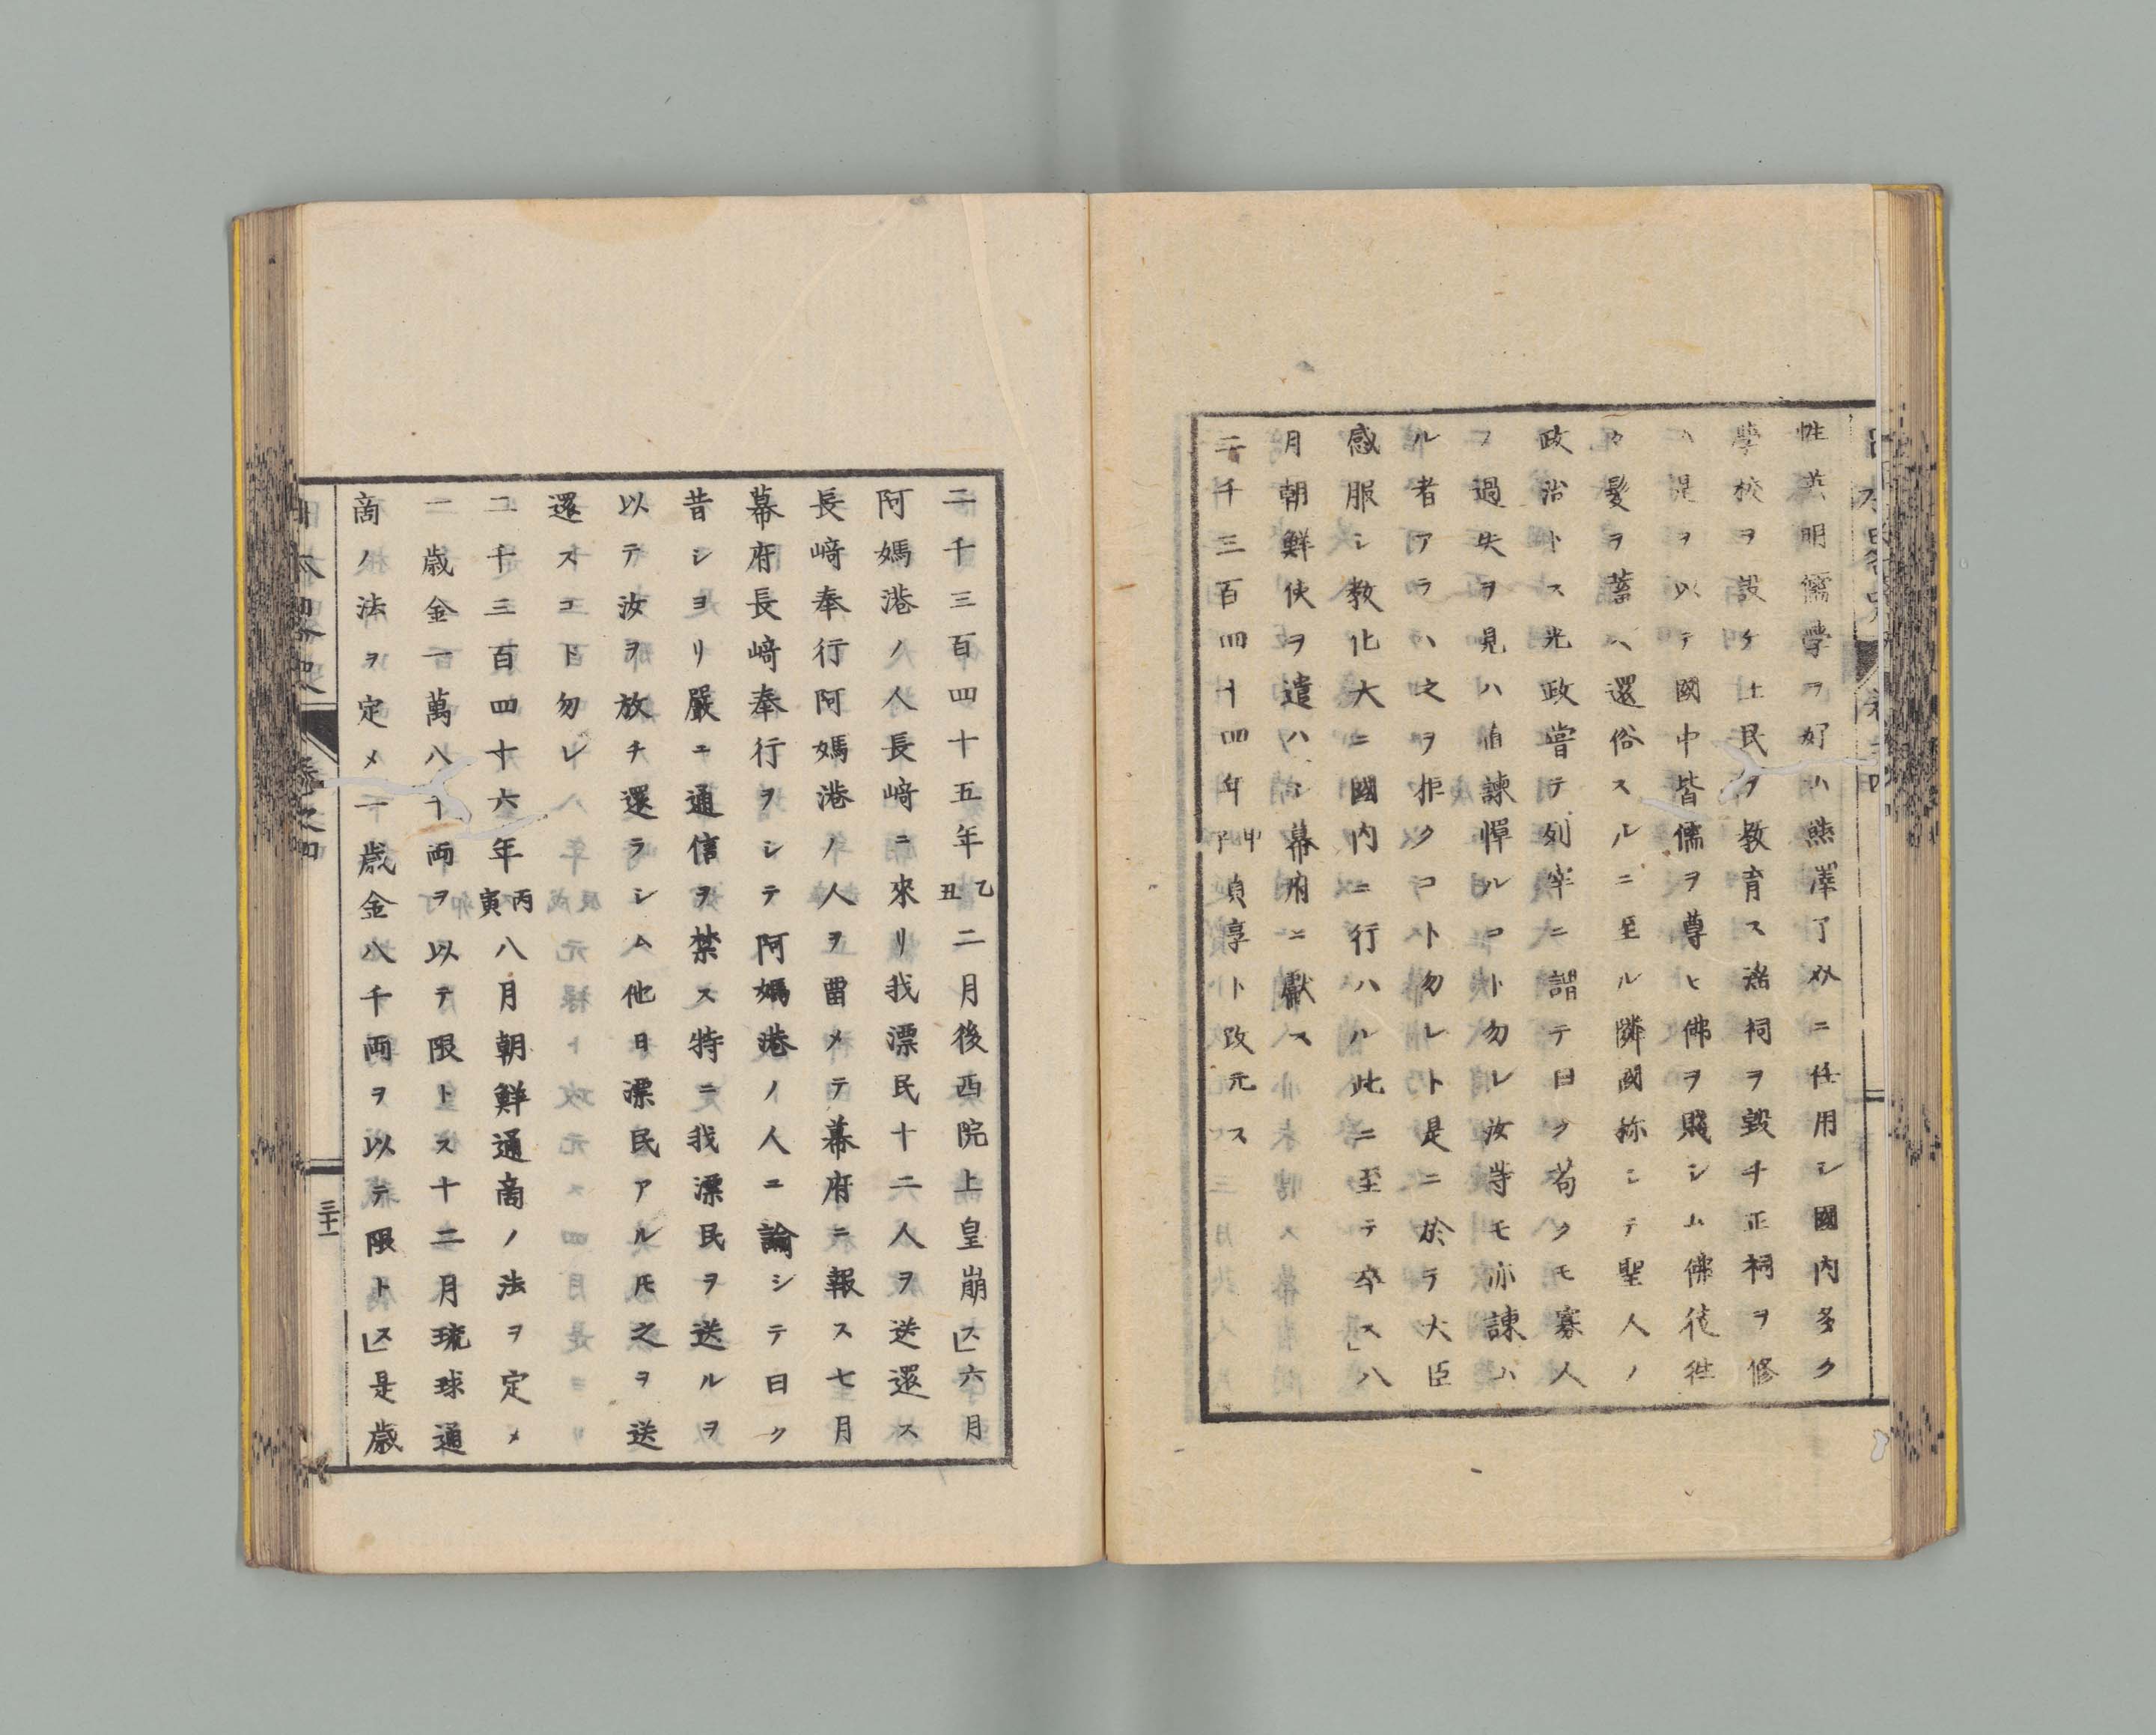 性英明儒學ヲ好ハ熊澤了介ニ任用シ國内多ク
學校ヲ設ケ士民ヲ教育ス諸祠ヲ毀チ正祠ヲ修
ム是ヲ以テ國中皆儒ヲ尊ヒ佛ヲ賤シム佛徒徃
々髮ヲ蓄ヘ還俗スルニ至ル隣國称シテ聖人ノ
政治トス光政嘗テ列宰ニ謂テ曰ク苟クモ寡人
ノ過失ヲ見ハ直諫憚ルコト勿レ汝等モ亦諫ム
ル者アラハ之ヲ拒クコト勿レト是ニ於テ大臣
感服シ教化大ニ國内ニ行ハル此ニ至テ卒ス」八
月朝鮮使ヲ遣ハシ幕府ニ獻ス
二千三百四十四年甲子貞享ト改元ス
二千三百四十五年乙丑二月後西院上皇崩ス」六月
阿媽港ノ人長﨑ニ來リ我漂民十二人ヲ送還ス
長﨑奉行阿媽港ノ人ヲ畱メテ幕府ニ報ス七月
幕府長﨑奉行ヲシテ阿媽港ノ人ニ論シテ曰ク
昔シヨリ嚴ニ通信ヲ禁ス特ニ我漂民ヲ送ルヲ
以テ汝ヲ放チ還ラシム他日漂民アルモ之ヲ送
還スコト勿レ
二千三百四十六年丙寅八月朝鮮通商ノ法ヲ定メ
一歳金一萬八千両ヲ以テ限トス十二月琉球通
商ノ法ヲ定メ一歳金八千両ヲ以テ限トス」是歳
卷之四
三十一